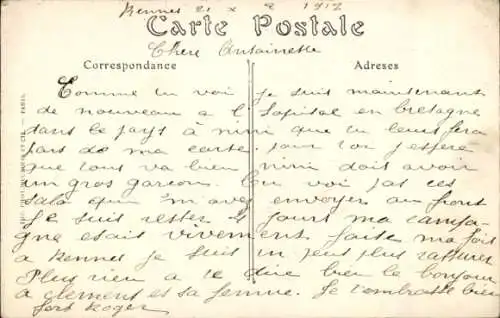 Rennes 21 x
Carte Postale
Chere Antoinette
Correspondance
Adreses
Comme tu voi je suis maintenant
de nouveau a l' hopital en bretagne
dans le pays à nini que tu leur fera
pars de ma carte. pour toi j'espère
que tous va bien nini dois avoir
un gros garcon. Tu voi pas ces
sala qui m'avez envoyer au front
Je suit rester jours ma campa-
gne etait vivement faite ma fois
a Rennes je suis un peut plus rassurer
Plus rien a te dire bien le bonjour
a clement et sa femme. Je t'embrasse bien
fort Roger